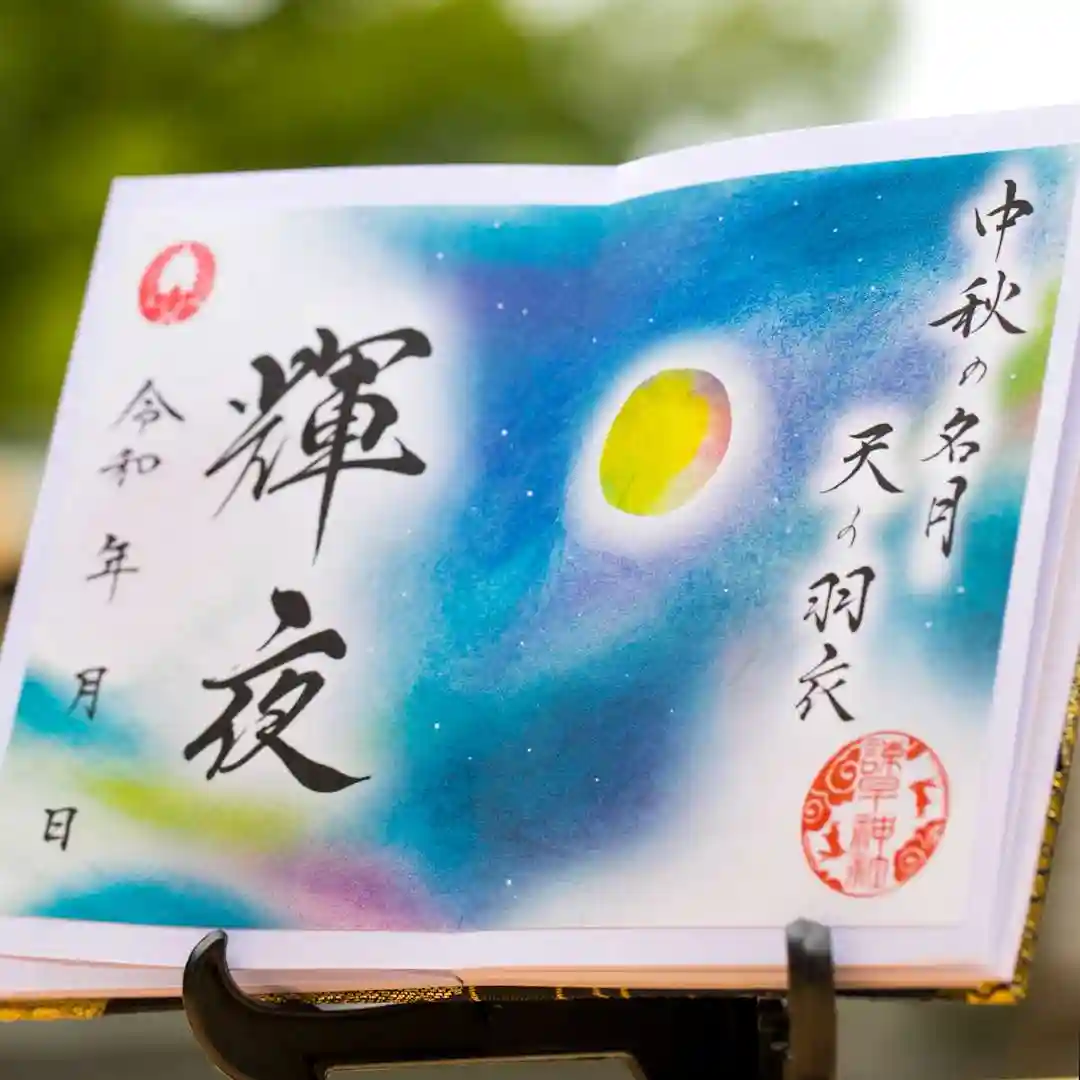 中秋の名月
天の羽衣
諏訪神社
輝夜
令和 年 月 日